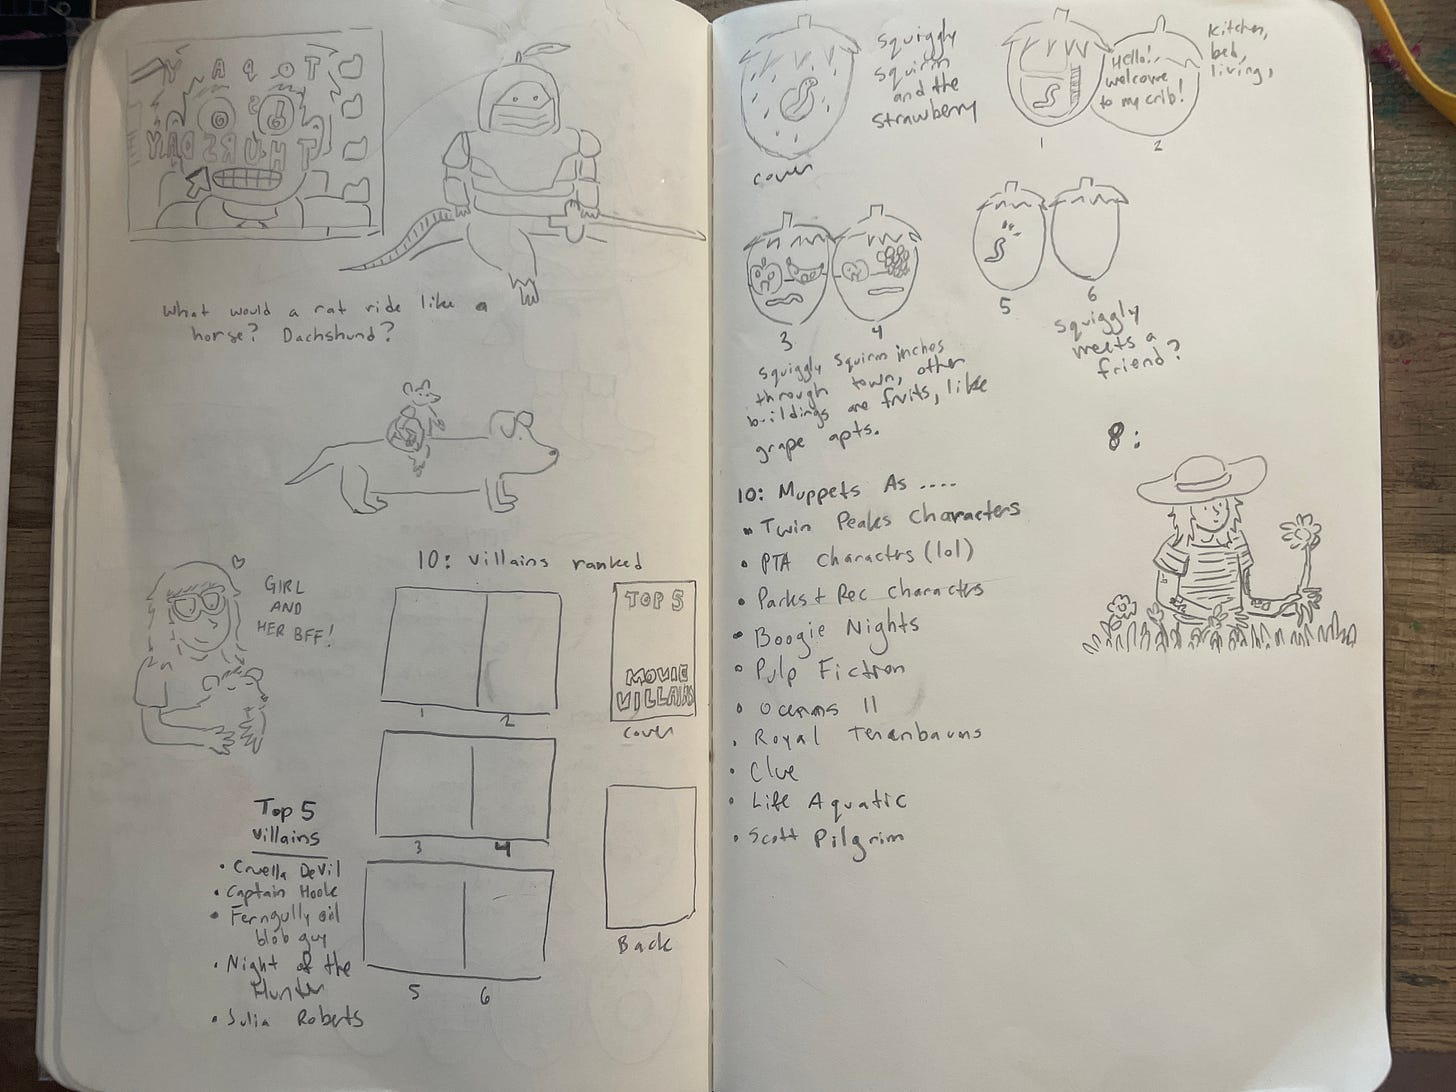 TOQAY
THURSDAY
What would a rat ride like a
horse? Dachshund?
GIRL
AND
HER BFF!
10: villains ranked
1
2
TOP 5
MOVIE
VILLAINS
cover
3
4
5
6
Back
Top 5
Villains
• Cruella DeVil
• Captain Hook
• Ferngully oil
blob guy
• Night of the
Hunter
• Julia Roberts
Squiggly
squirm
and the
strawberry
cover
Hello!
welcome
to my crib!
1
2
Kitchen,
bed,
living,
3
4
Squiggly Squirm inches
through town, other
buildings are fruits, like
grape apts.
5
6
Squiggly
meets a
friend?
8:
10: Muppets As ....
• Twin Peaks Characters
• PTA characters (lol)
• Parks + Rec characters
• Boogie Nights
• Pulp Fiction
• Oceans 11
• Royal Tenenbaums
• Clue
• Life Aquatic
• Scott Pilgrim